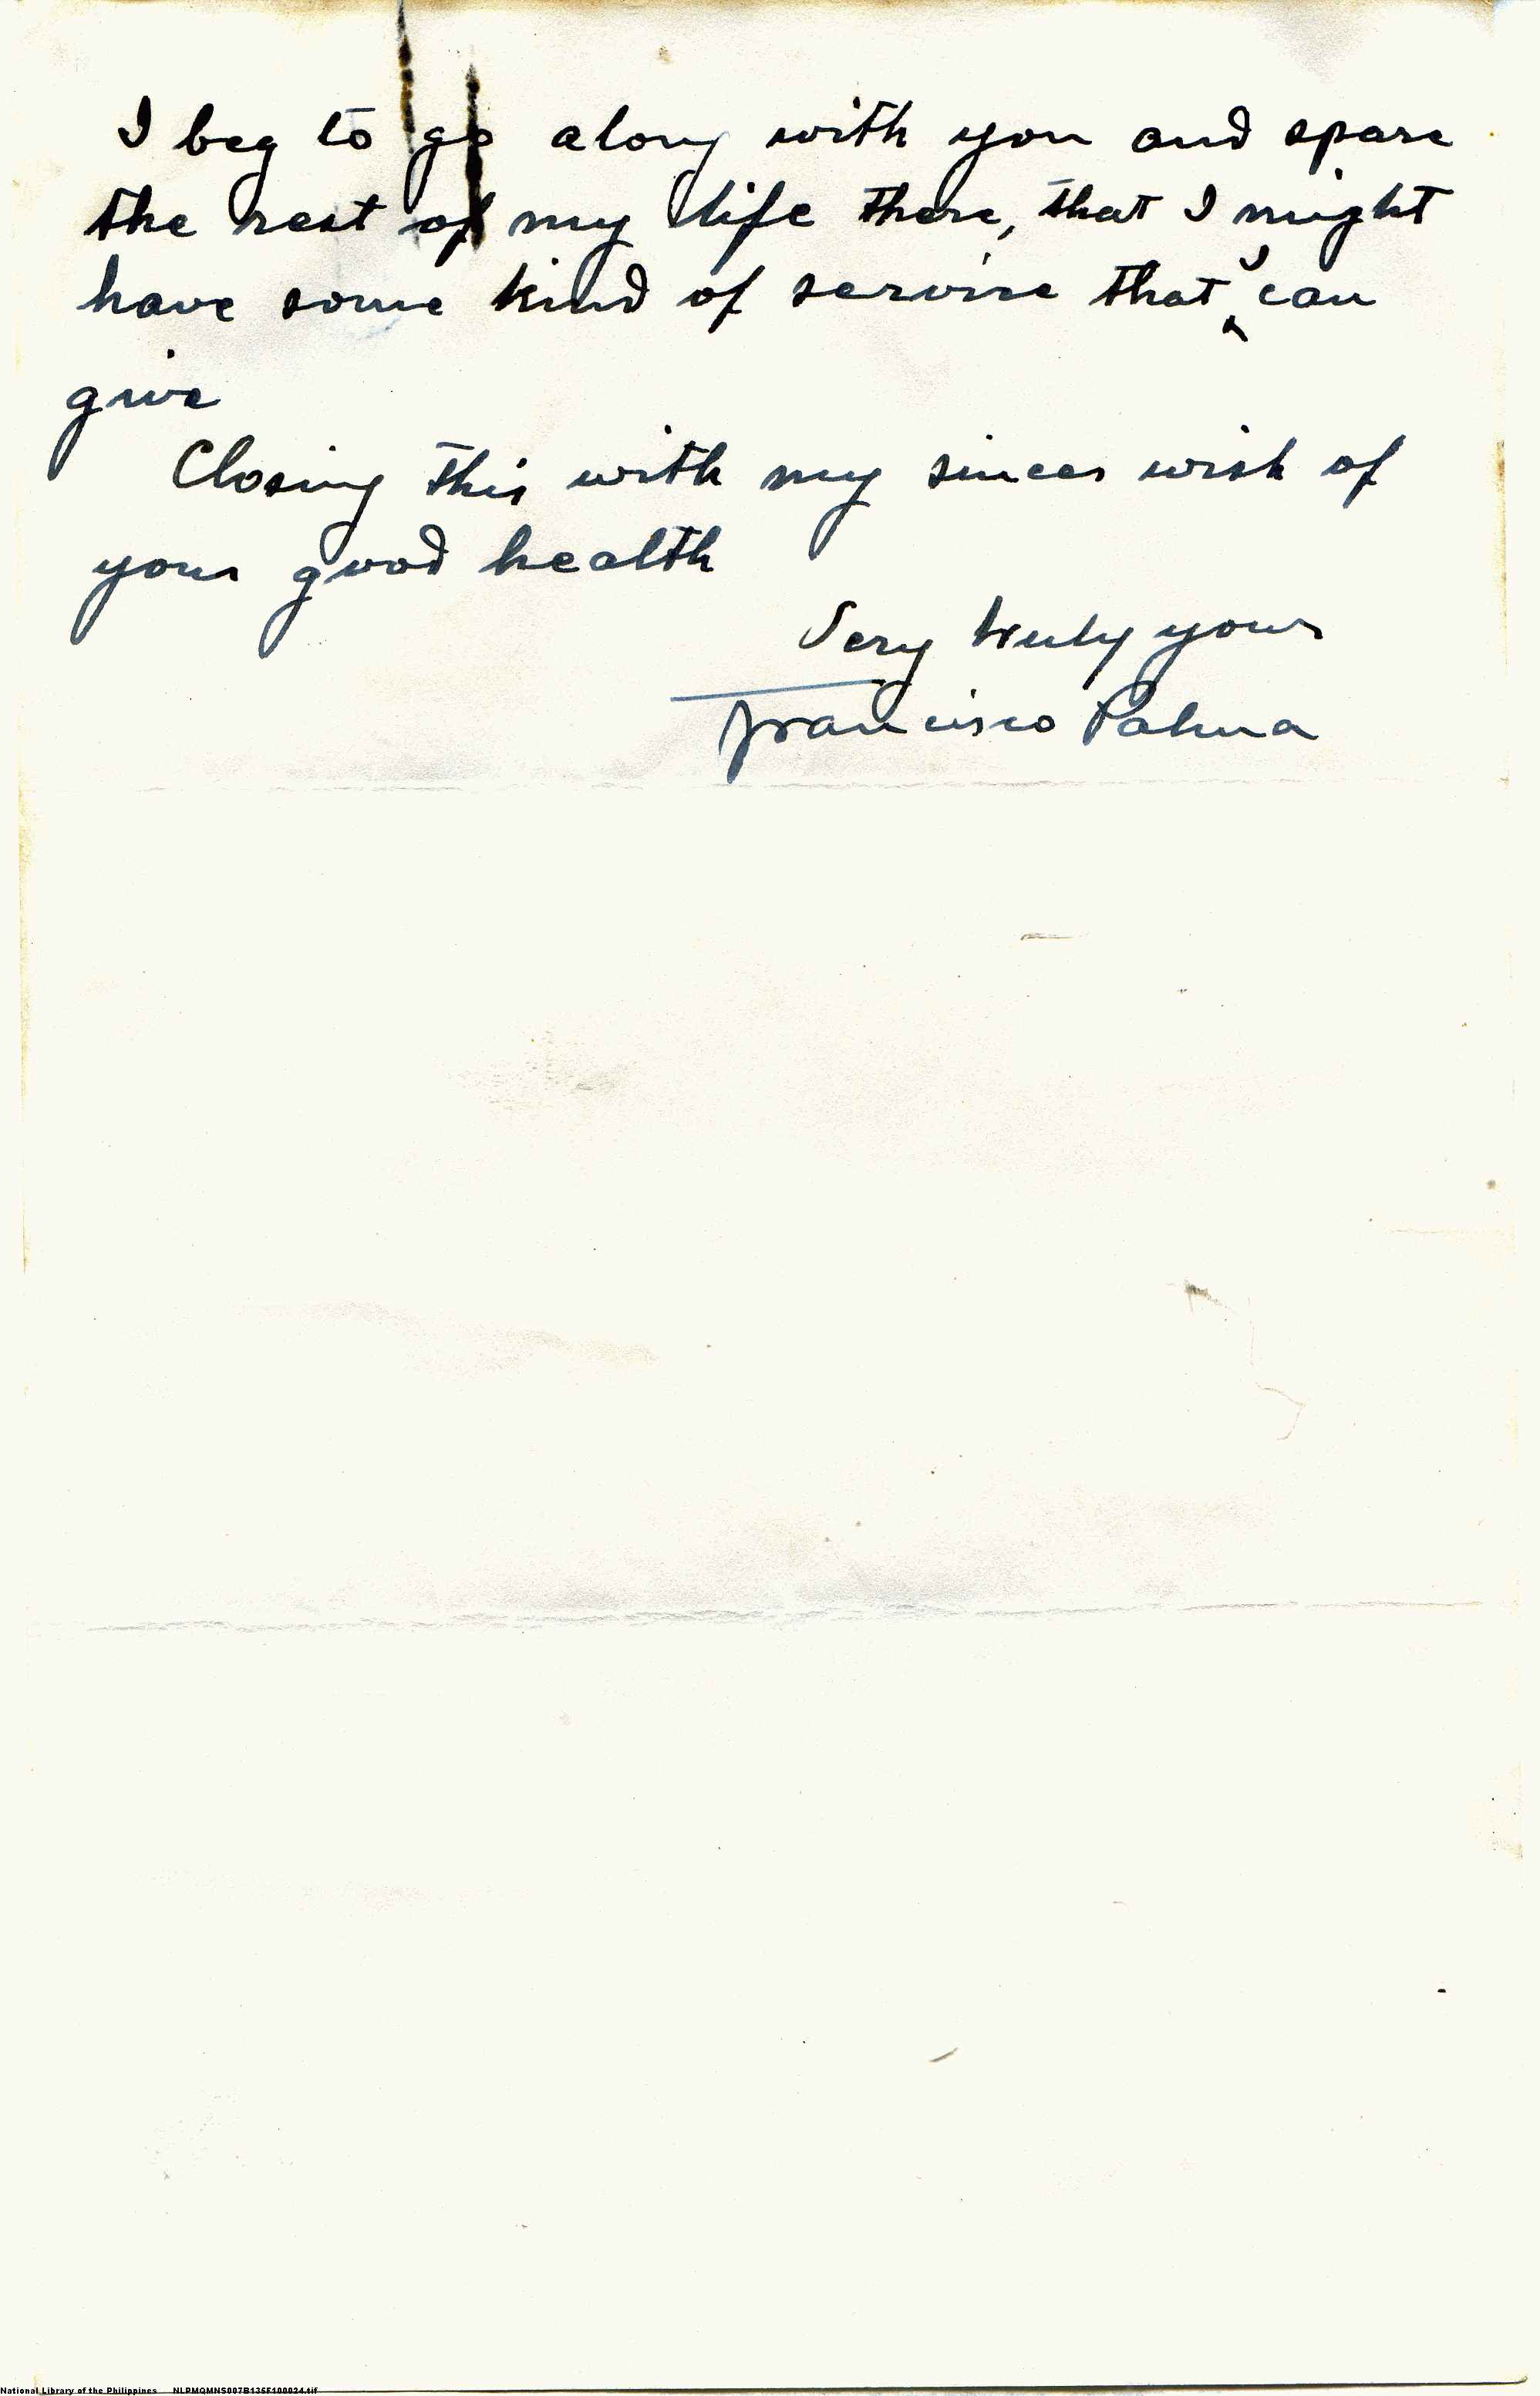 I beg to go along with you and spare
the rest of my life there, that I might
have some kind of service that I can
give
Closing this with my sincer wish of
your good health
Very truly yours
Francisco Palma
National Library of the Philippines NLPMQMNS007B135F100024.tif